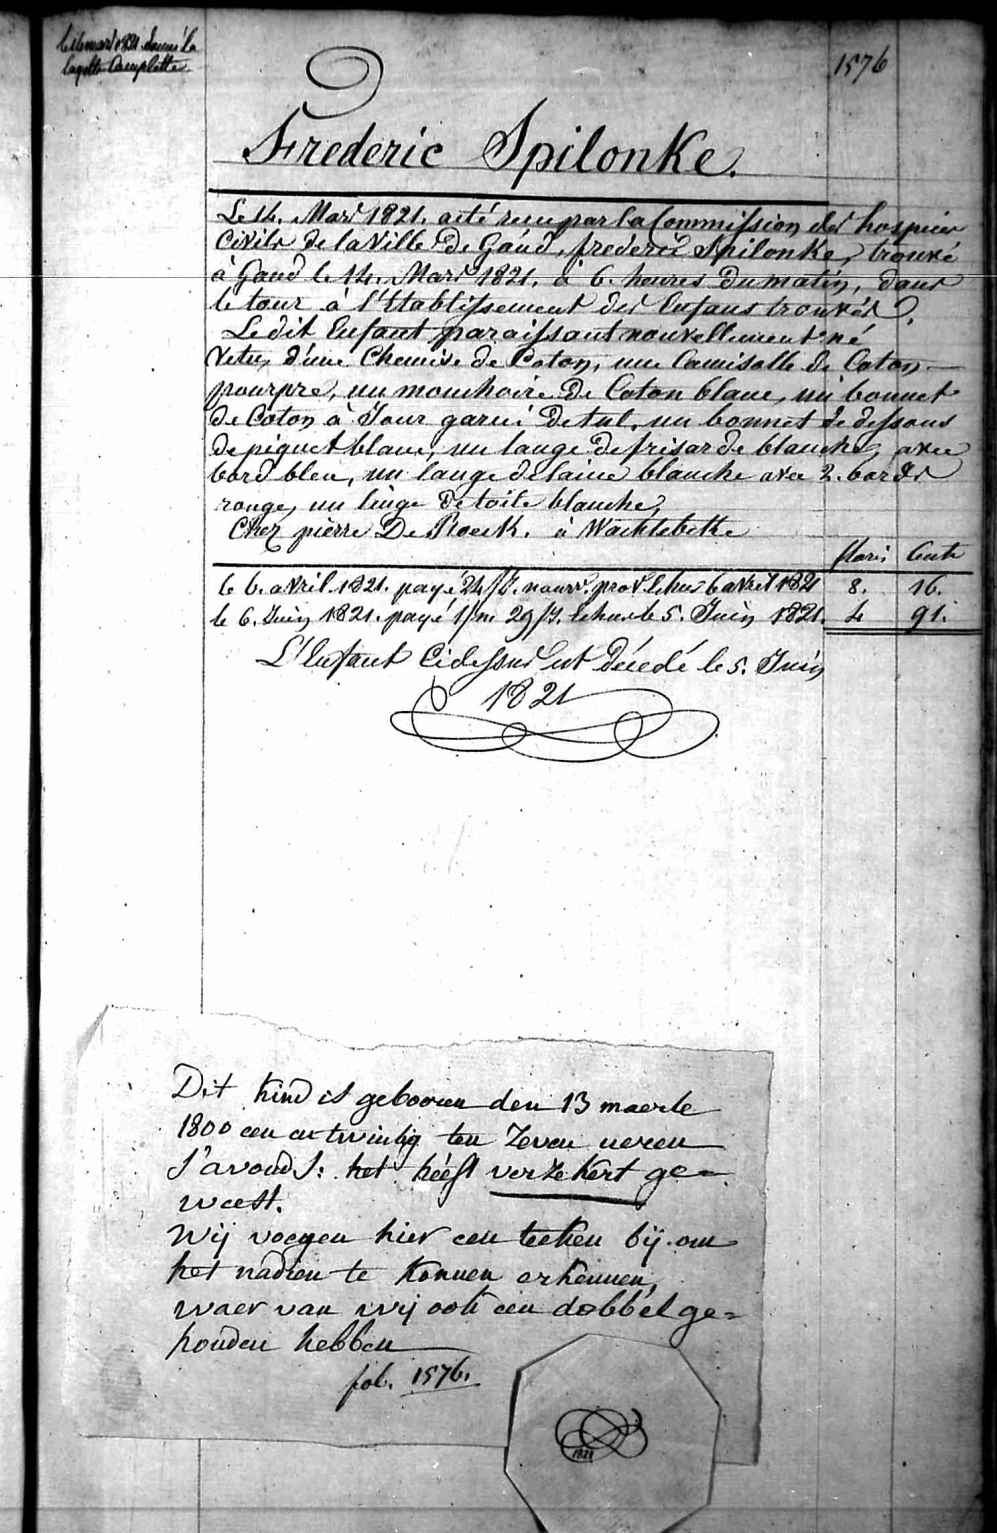 Le 16 mars 1821. donné la
layette Complette
1576
Frederic Spilonke.
Le 14. Mars 1821. a été reçu par la Commission des hospices
Civils de la Ville de Gand, frederic Spilonke, trouvé
à Gand le 14. Mars 1821. à 6. heures du matin, dans
le tour à l'Etablissement des Enfans trouvés.
Le dit Enfant paraissant nouvellement né
Vetu, d'une Chemise de Coton, une Camisolle de Coton
pourpre, un mouchoire de Coton blanc, un bonnet
de Coton à Jour garni de tul, un bonnet de dessous
de piquet blanc, un lange de frisar de blanche, avec
bord bleu, un lange de laine blanche avec 2. bords
rouge, un linge de toile blanche,
Chez pièrre De Roeck. à Wachtebeke
florins Cents
le 6. avril 1821. payé 24/J. nourr. prov. Echus 6 avril 1821 8. 16.
le 6. Juin 1821. payé 1/m 29/J. echus le 5. Juin 1821. 4 91.
L'Enfant Cidessus est décédé le 5. Juin
1821
Dit kind is gebooren den 13 maerte
1800 een en twintig ten Zeven ueren
S'avonds: het hééft verzekert ge-
weest.
Wij voegen hier een teeken bij om
het nadien te konnen erkennen,
waer van wij ook een dobbel ge=
houden hebben
fol. 1576.
1821